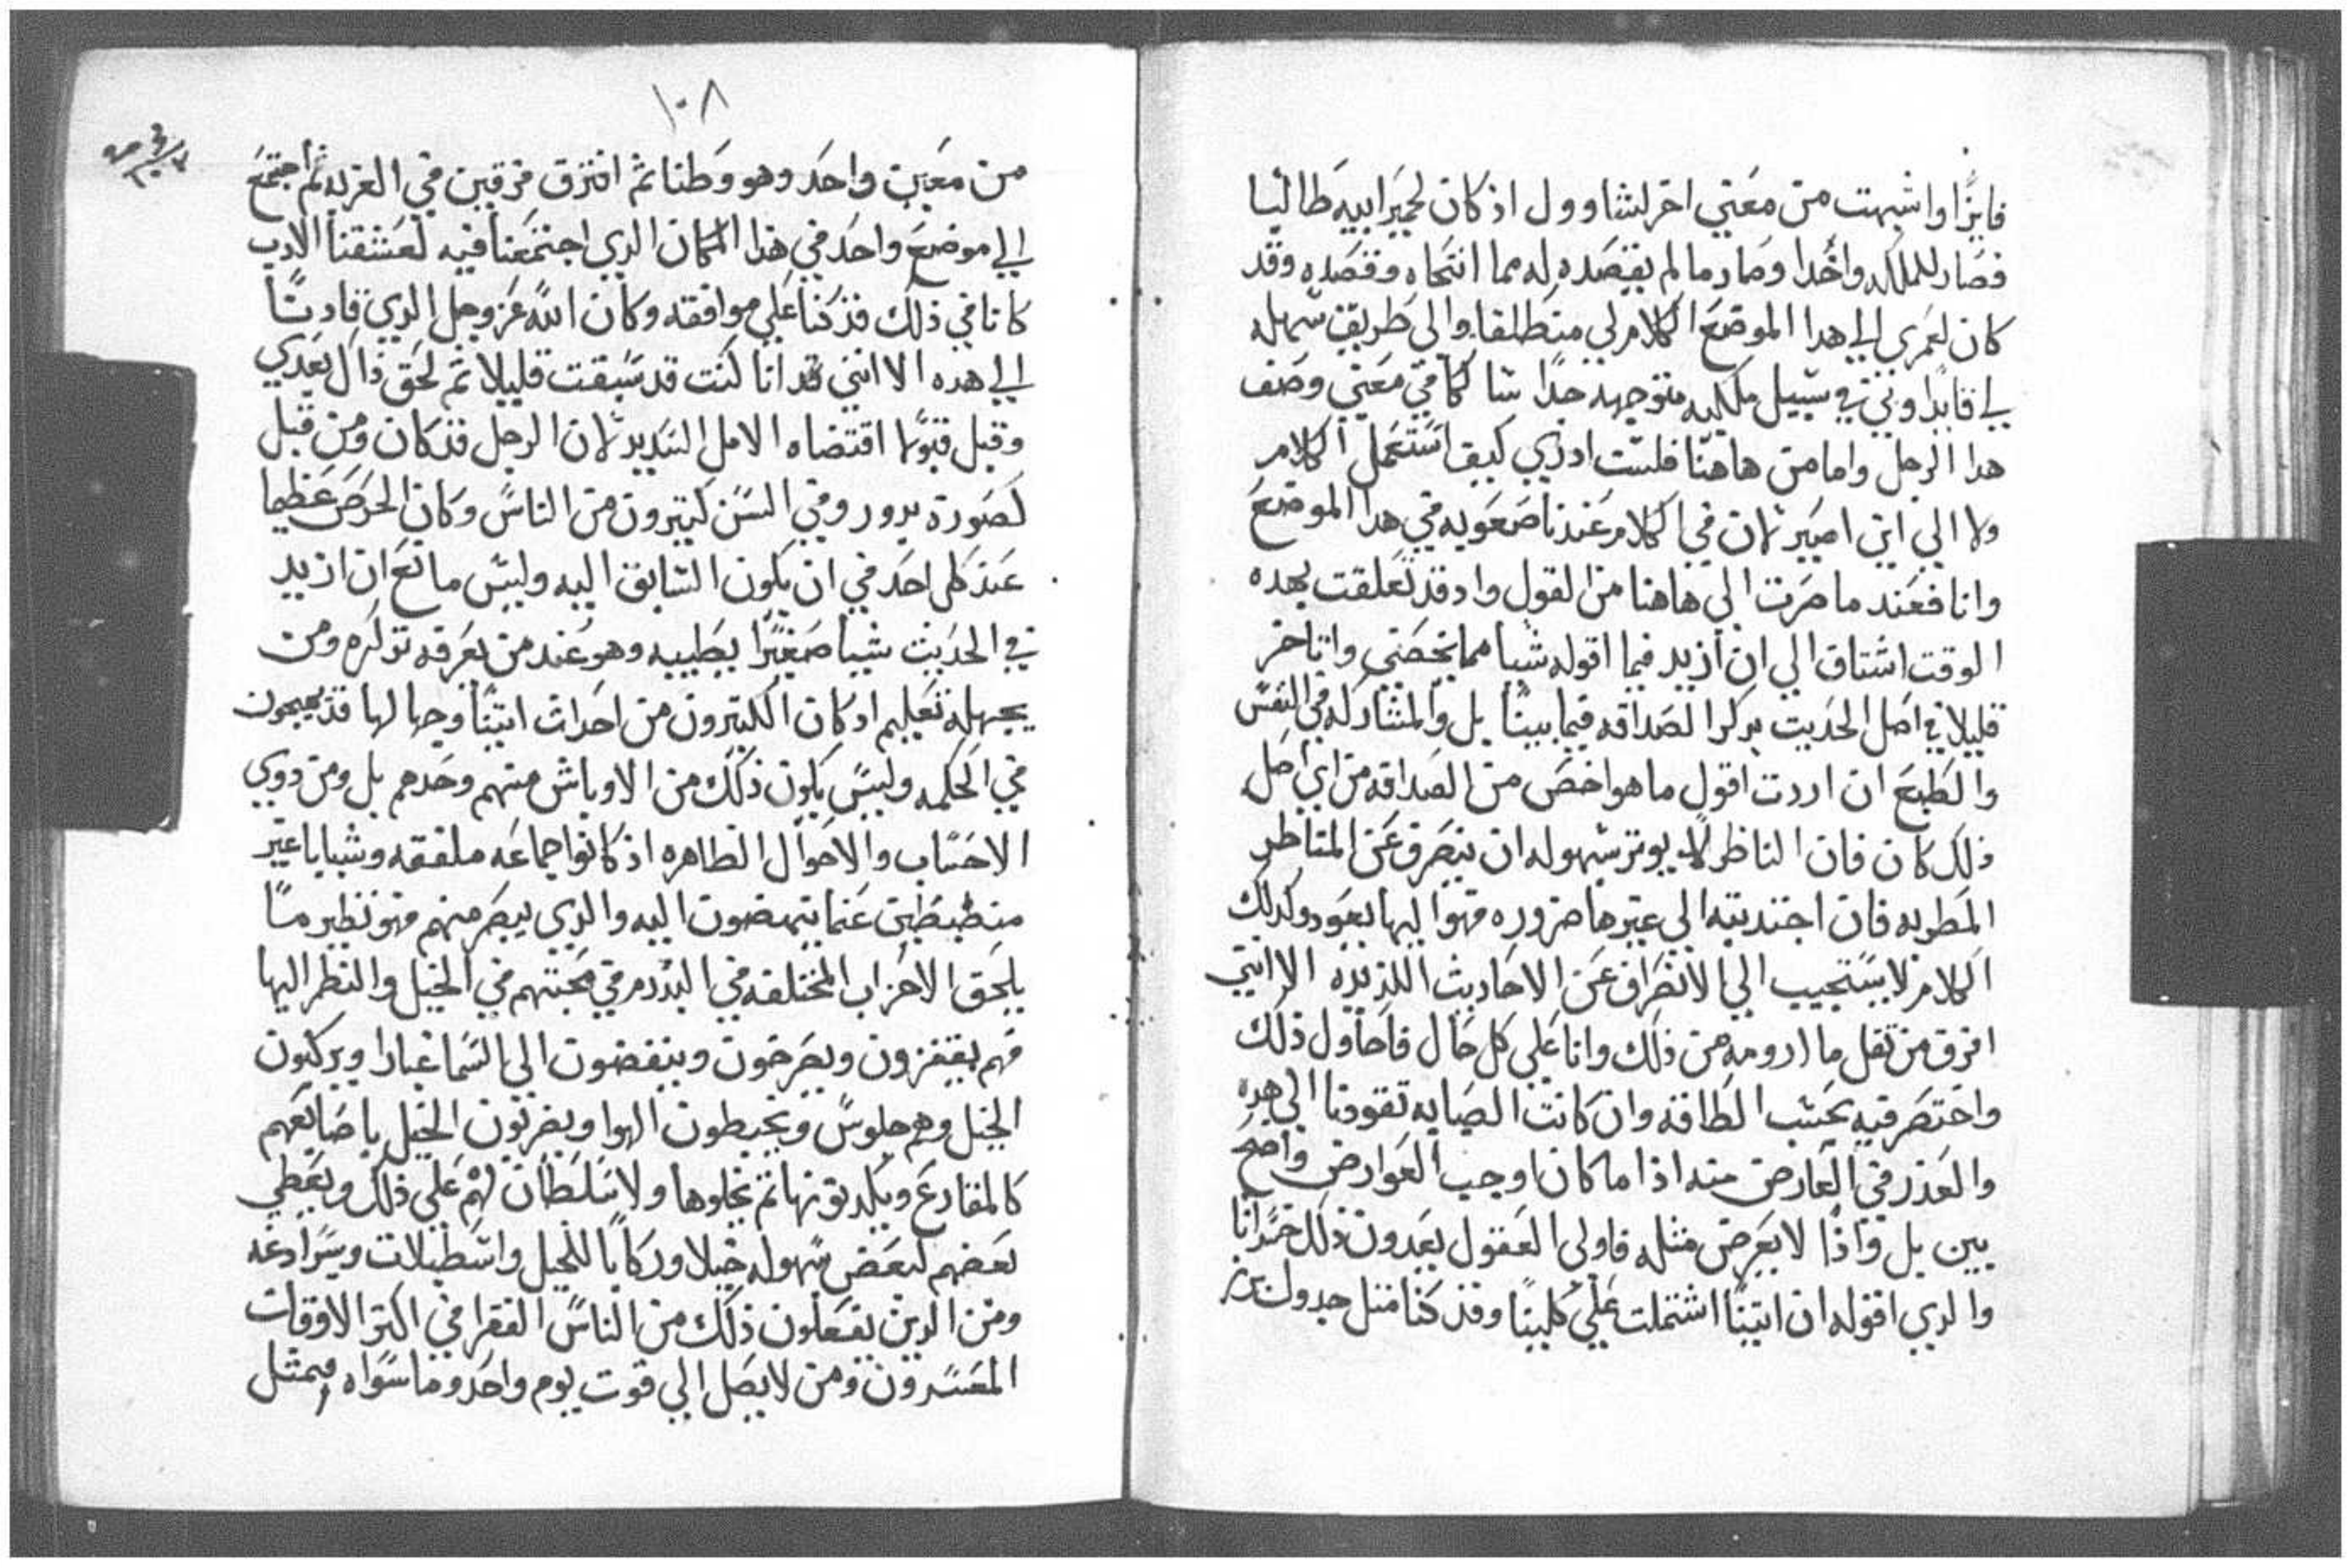 فايزًا واشبهت من معني اخر لشاوول اذ كان لحمير ابيه طالبا
فصار للملكه واخدا وصار ما لم يقصده له مما انتحاه وقصده وقد
كان لعمري الي هدا الموضع الكلام لي منطلقا والي طريق سهله
لي قايدا وفي سبيل ملكيه متوجهه جدًا شا كما في معني وصف
هدا الرجل واما من هاهنا فلست ادري كيف استعمل الكلام
ولا الي اين اصير لان في الكلام عندنا صعوبه في هدا الموضع
وانا فعند ما صرت الي هاهنا من القول واد قد تعلقت بهده
الوقت اشتاق الي ان ازيد فيما اقوله شيا مما يخصني واتاخر
قليلا في اصل الحديت بدكر الصداقه فيما بيننا بل والمشاركه في النفس
والطبع ان اردت اقول ما هو اخص من الصداقه من اي اصل
ذلك كان فان الناظر لا يوتر بسهوله ان ينصرف عن المناظر
المطربه فان اجتدبته الي غيرها ضروره فهو اليها يعود وكدلك
الكلام لا يستجيب الي الانصراف عن الاحاديث اللذيذه الا انني
افرق من ثقل ما ارومه من ذلك وانا علي كل حال فاحاول ذلك
واختصر فيه بحسب الطاقه وان كانت الصبابه تقودنا الي هده
والعذر في العارض منه اذا ما كان اوجب العوارض واضح
بين بل واذا لا يعرض مثله فاولي العقول يعدون ذلك خسرانا
والدي اقوله ان اتينا اشتملت علي كلينا وقد كنا مثل جدول نهر
١٠٨
من معين واحد وهو وطننا ثم افترق فرقين في الغربه ثم اجتمع
الي موضع واحد في هذا المكان الدي اجتمعنا فيه لعشقنا الادب
كانا في ذلك قد كنا علي موافقه وكان الله عز وجل الدي قادنا
الي هده الا انني قد انا كنت قد سبقت قليلا ثم لحق ذاك بعدي
وقبل قبولا اقتضاه الامل الشديد لان الرجل قد كان ومن قبل
لصوره يدور وفي السن كتيرون من الناس وكان الحرص عظيما
عند كل احد في ان يكون السابق اليه وليس مانع ان ازيد
في الحديث شيا صغيرًا يطيبه وهو عند من يعرفه تدكره ومن
يجهله تعليم اد كان الكتيرون من احداث اتينا وجهالها قد يهيمون
في الحكمه وليس يكون ذلك من الاوباش منهم وحدهم بل ومن دوي
الاحساب والاحوال الظاهره اذ كانوا جماعه ملفقه وشبابا غير
منضبطين عما ينهضون اليه والدي يبصر منهم فهو نظير ما
يلحق الاحزاب المختلفه في البدد من في محبتهم في الخيل والنظر اليها
فهم يقفزون ويصرخون وينفضون الي السما غبارا ويركبون
الخيل وهم جلوس ويخبطون الهوا ويضربون الخيل باصابعهم
كالمقارع ويكدبونها ثم يخلوها ولا سلطان لهم علي ذلك ويعطي
بعضهم لبعض بسهوله خيلا وركابا للخيل واسطبلات وسرادعه
ومن الدين يفعلون ذلك من الناس الفقرا في اكتر الاوقات
المعسرون ومن لا يصل الي قوت يوم واحد وما سواه فبمثل